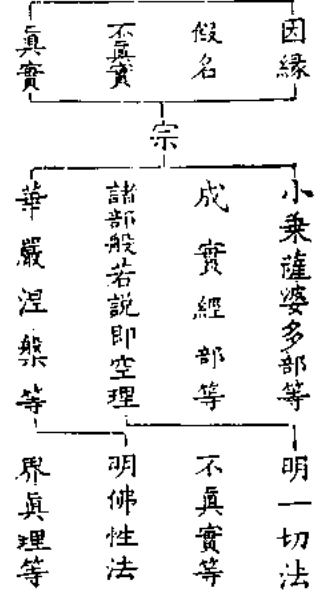 因緣
假名
不眞實
眞實
宗
小乘薩婆多部等
成實經部等
諸部般若說即空理
明一切法
不眞實等
華嚴涅槃等
明佛性法
界眞理等